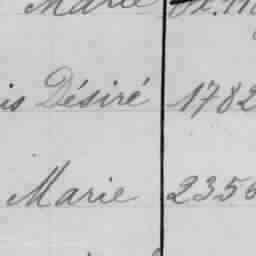 Marie
is Désiré 1782
Marie 2356